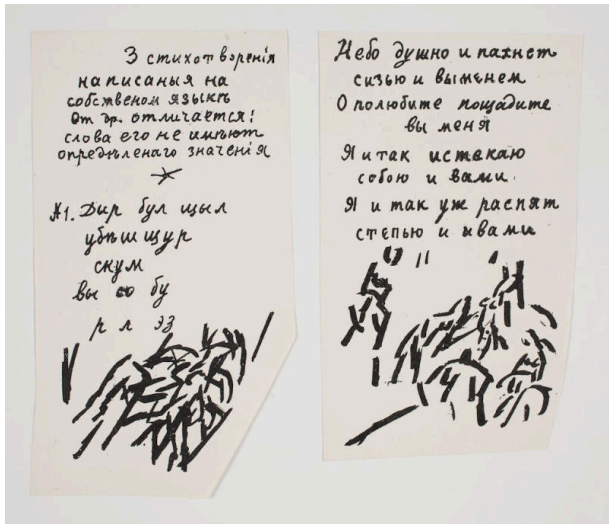 3 стихотворенія
написаныя на
собственом языкѣ
от др. отличается:
слова его не имѣют
опредѣленаго значенія
№1. Дыр бул щыл
убѣшщур
скум
вы со бу
р л эз
Небо душно и пахнет
сизью и выменем
О полюбите пощадите
вы меня
Я и так истекаю
собою и вами
Я и так уж распят
степью и ивами